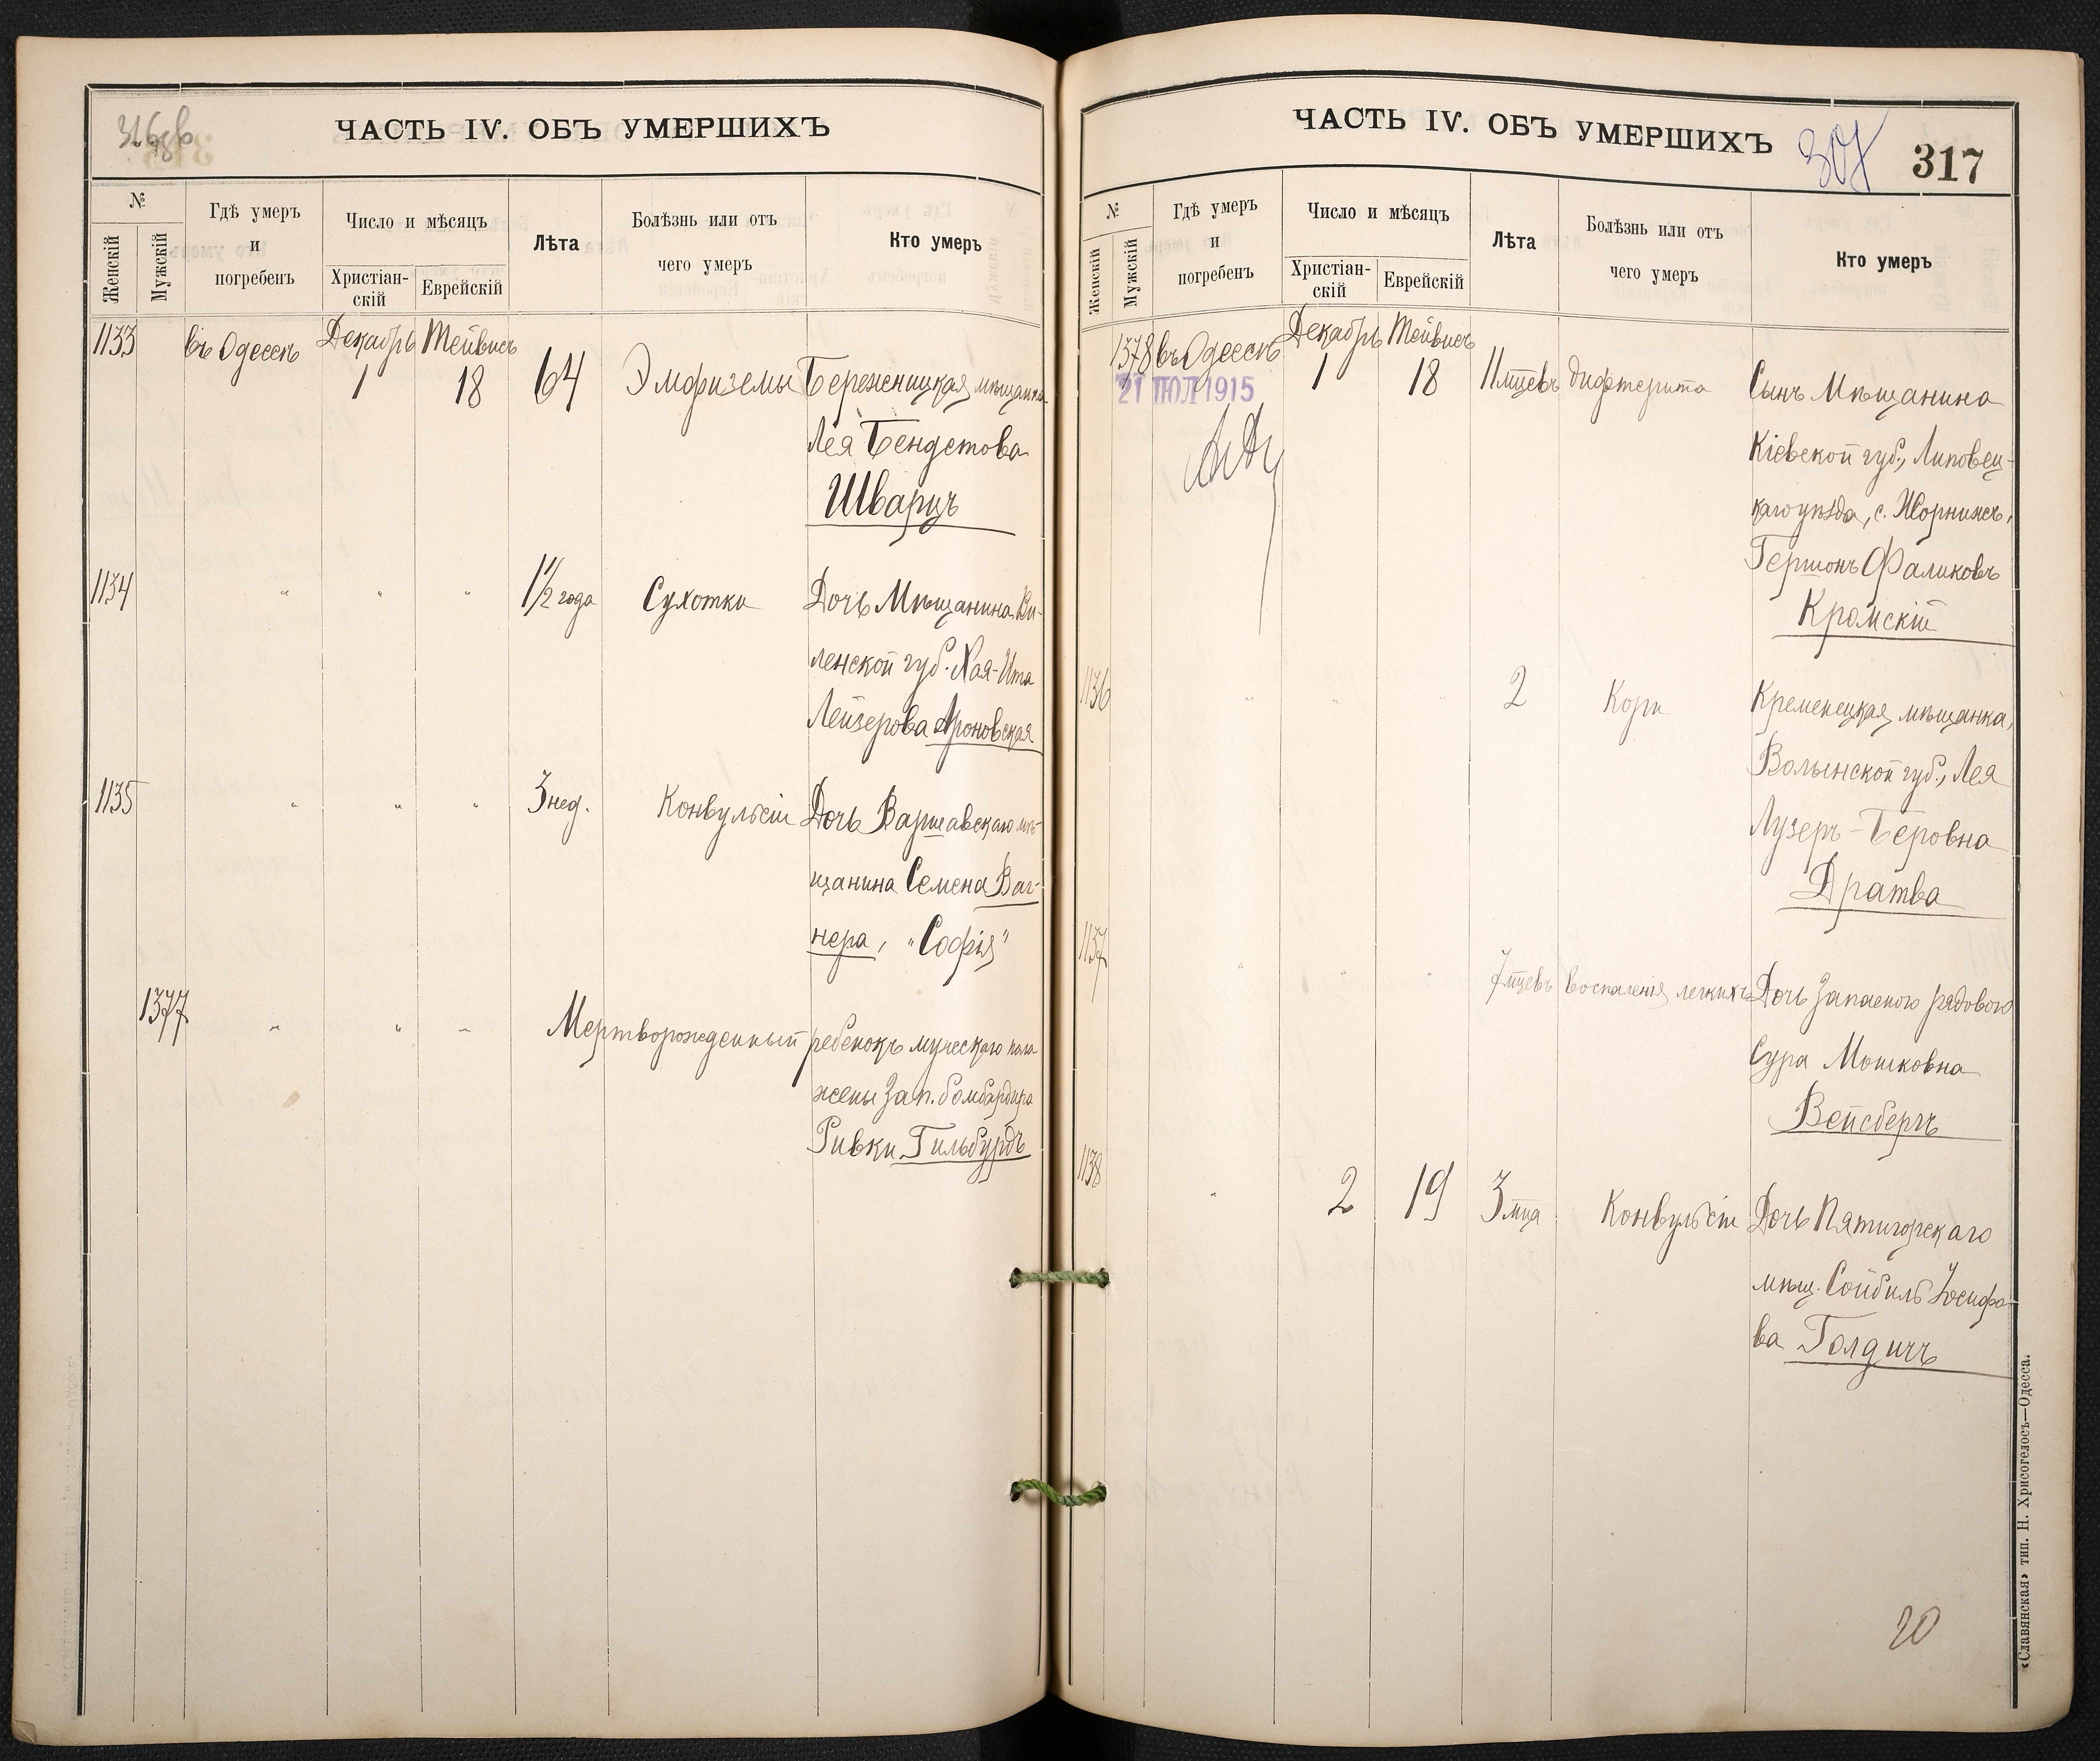 ЧАСТЬ IV. ОБЪ УМЕРШИХЪ
№
Женскій
Мужскій
Гдѣ умеръ
и
погребенъ
Число и мѣсяцъ
Христіан-
скій
Еврейскій
Лѣта
Болѣзнь или отъ
чего умеръ
Кто умеръ
1133 въ Одессѣ Декабрь Тейвисъ
1 18 64 Эмфиземы Бережницкая мѣщанка
Лея
Шварцъ
1134 " " " 1½ года Сухотки Дочь Мѣщанина Ви-
ленской губ. Хая-Ита
Лейзерова Ароновская
1135 " " " 3 нед. Конвульсіи Дочь Варшавскаго мѣ-
щанина Семена Ваг-
нера, "Софія"
1377 " " " Мертворожденный ребенокъ мужескаго пола
жены Зап. бомбардира
Ривки Гильбурдъ
ЧАСТЬ IV. ОБЪ УМЕРШИХЪ
307
317
№
Женскій
Мужскій
Гдѣ умеръ
и
погребенъ
Число и мѣсяцъ
Христіан-
скій
Еврейскій
Лѣта
Болѣзнь или отъ
чего умеръ
Кто умеръ
1378 въ Одессѣ Декабрь Тейвисъ
21 ІЮЛ 1915
1 18 11 мѣцевъ дифтерита Сынъ Мѣщанина
Кіевской губ., Липовец-
каго уѣзда, с. Жорнище,
Гершонъ Фаликовъ
Кромскій
1136 " " " 2 Кори Кременецкая мѣщанка,
Волынской губ., Лея
Лузеръ-Беровна
Дратва
1137 " " " 7 мѣцевъ Воспаленія легкихъ Дочь Запасного рядового
Сура Мошковна
Вейсбергъ
1138 " 2 19 3 мца Конвульсіи Дочь Пятигорскаго
мѣщ. Сойбиль Іосифо
ва Голдичъ
20
«Славянская» тип. Н. Хрисогелосъ—Одесса.